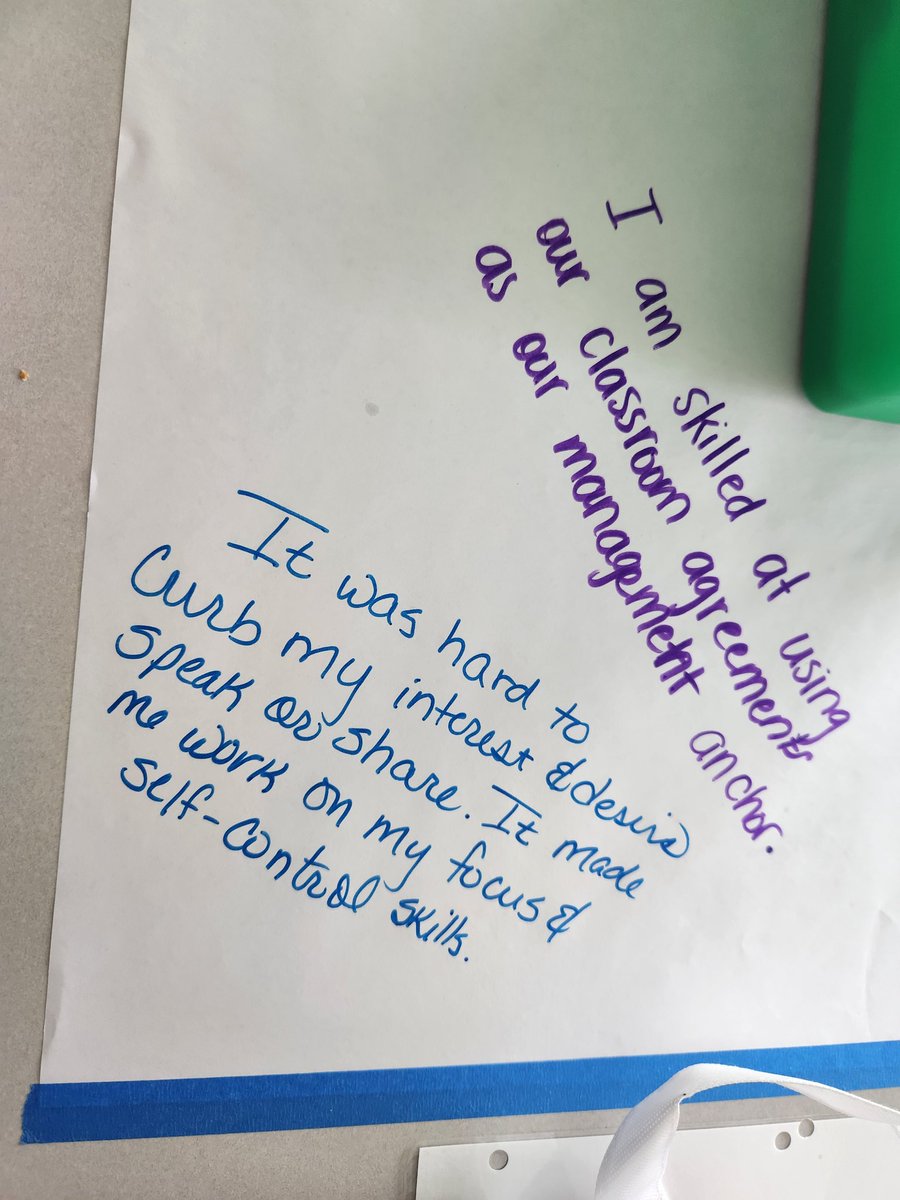 I am skilled at using
our classroom agreements
as our management anchor.
It was hard to
curb my interest & desire
speak or share. It made
me work on my focus &
self-control skills.